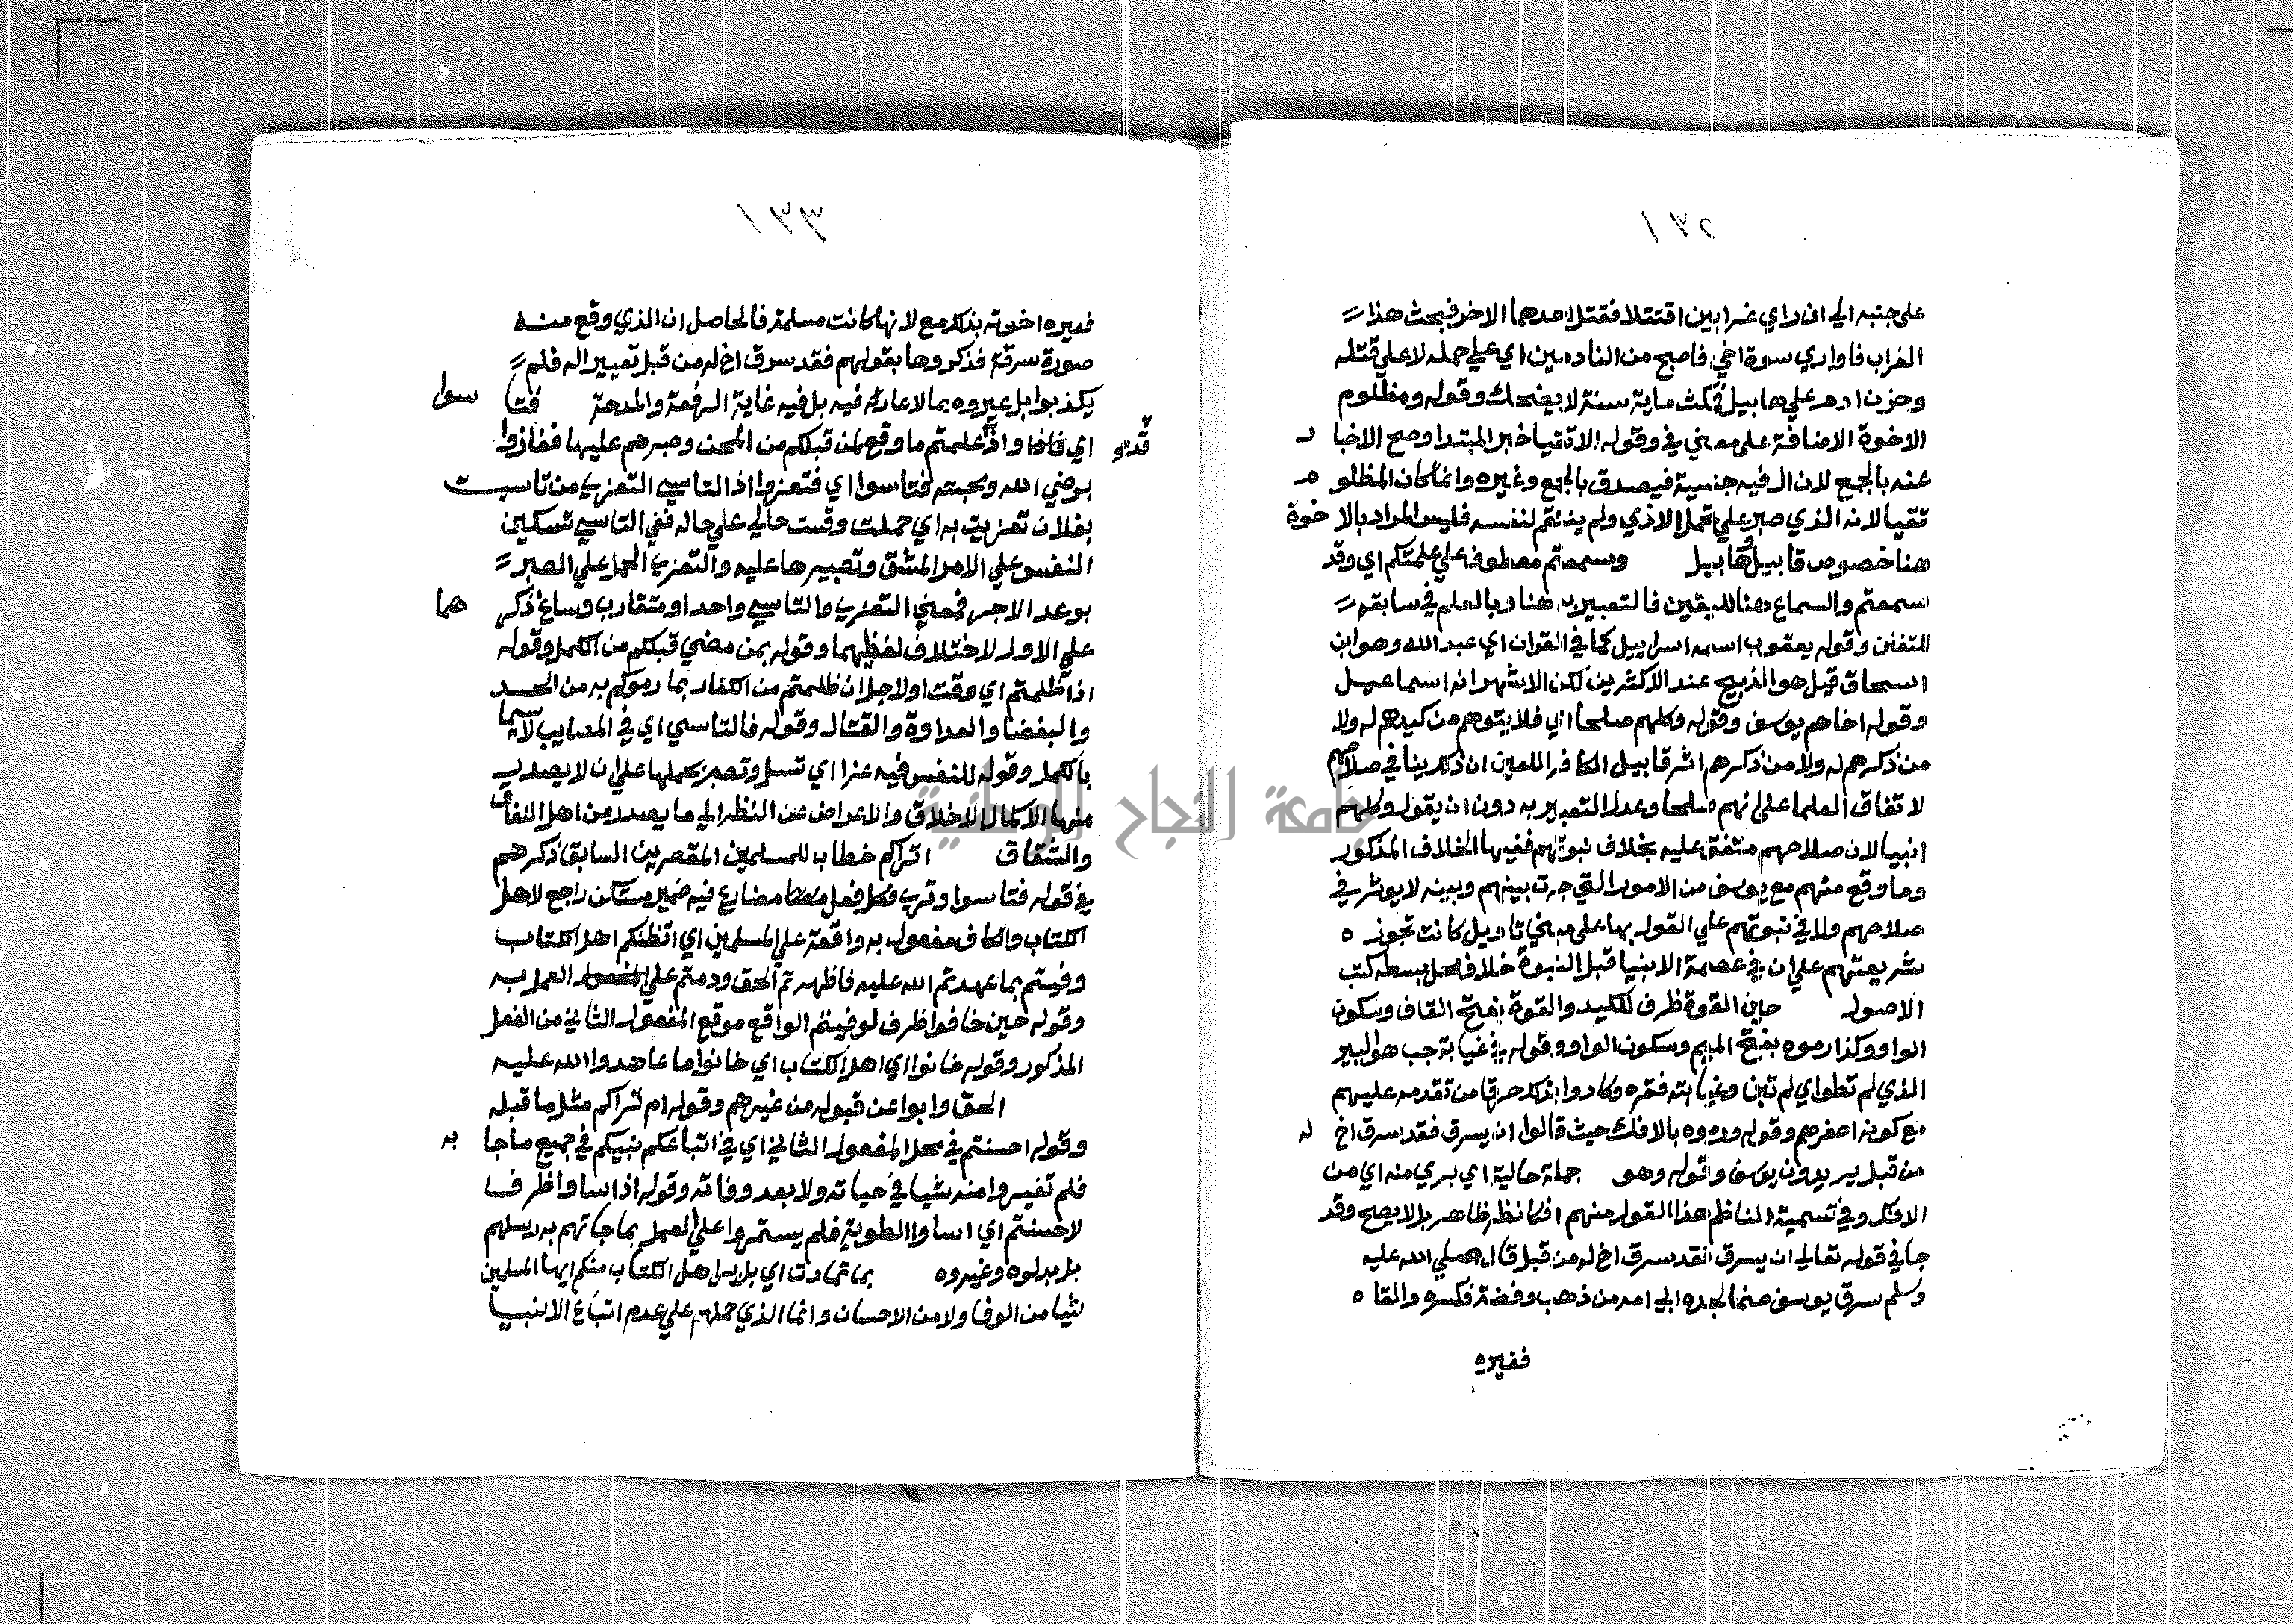 ١٣٢
على جنبه الي ان راي غرابين اقتتلا فقتل احدهما الاخر فبحث هذا
الغراب فاواري سوة اخي فاصبح من النادمين اي علي حمله لا علي قتله
وحزن ادم علي هابيل فمكث ماية سنة لا يضحك وقوله ومظلوم
الاخوة الاضافة على معني في وقوله الاتقيا خبر المبتدا وصح الاخبار
عنه بالجمع لان ال فيه جنسية فيصدق بالجمع وغيره وانما كان المظلوم
تقيا لانه الذي صبر علي تحمل الاذي ولم ينتقم لنفسه فليس المراد بالاخوة
هنا خصوص قابيل وهابيل وسمعتم معطوف علي علمتكم اي وقد
سمعتم والسماع هنا لليقين فالتعبير به هنا وبالعلم في سابقه
للتفنن وقوله يعقوب اسمه اسراييل كما في القران اي عبد الله وهو ابن
اسحاق قيل هو الذبيح عند الاكثرين لكن الاشهر انه اسماعيل
وقوله اخاهم يوسف وقوله وكلهم صلحا اي فلا يتوهم من كيدهم له ولا
من ذكرهم له ولا من ذكرهم اثر قابيل الكافر اللعين ان ذكر ينافي صلاحهم
لاتفاق العلما علي انهم صلحا وعدل التعبير به دون ان يقول وكلهم
انبيا لان صلاحهم متفق عليه بخلاف نبوتهم ففيها الخلاف المذكور
وما وقع منهم مع يوسف من الامور التي جرت بينهم وبينه لا يوثر في
صلاحهم ولا في نبوتهم علي القول بها على مبني تاويل كانت تجوزه
شريعتهم علي ان في عصمة الانبيا قبل النبوة خلاف محل بسطه كتب
الاصول حين القوة ظرف للكيد والقوة بفتح القاف وسكون
الواو وكذا رموه بفتح الميم وسكون الواو وقوله في غيابة جب هو البير
الذي لم تطو اي لم تبن وغيابته قعره وكادوا بذكر حرقا من تقدمه عليهم
مع كونه اصغرهم وقوله ورموه بالافك حيث قالوا ان يسرق فقد سرق اخ له
من قبل يريدون يوسف وقوله وهو جملة حالية اي بري منه اي من
الافك وفي تسمية الناظم هذا القول منهم افكا نظر ظاهر بل لا يصح وقد
جا في قوله تعالي ان يسرق فقد سرق اخ له من قبل قال صلي الله عليه
وسلم سرق يوسف صنما لجده ابي امه من ذهب وفضة فكسره والقاه
فعيره
١٣٣
فعيره اخوته بذلك مع لانها كانت مسلمة فالحاصل ان الذي وقع منه
صورة سرقة فذكروها بقولهم فقد سرق اخ له من قبل تعييرا له فلم
يكذبوا بل عيروه بما لا عار له فيه بل فيه غاية الرفعة والمدحة فتاسوا
اي فاذا واذ علمتم ما وقع لمن قبلكم من المحن وصبرهم عليها ففازوا
برضي الله ومحبته فتاسوا اي فتعزوا اذ التاسي التعزي من تاسيت
بفلان تعزيت به اي حملت وقست حالي علي حاله ففي التاسي تسكين
النفس علي الامر المشق وتصبيرها عليه والتعزي الحمل علي الصبر
بوعد الاجر فمعني التعزي والتاسي واحد او متقارب وساغ ذكرهما
علي الاول لاختلاف لفظهما وقوله بمن مضي قبلكم من الكمل وقوله
اذ ظلمتم اي وقت او لاجل ان ظلمتم من الكفار بما رموكم به من الحسد
والبغضا والعداوة والقتال وقوله فالتاسي اي في المصايب لا سيما
بالكمل وقوله للنفس فيه عزا اي تسل وتصبر يحملها علي ان لا يصدر
منها الا كمال الاخلاق والاعراض عن النظر الي ما يصدر من اهل النفاق
والشقاق اتراكم خطاب للمسلمين المقصرين السابق ذكرهم
في قوله فتاسوا وتري فعل مضارع فيه ضمير مستكن راجع لاهل
الكتاب والكاف مفعول به واقعة علي المسلمين اي اتظنكم اهل الكتاب
وفيتم بما عهدتم الله عليه فاظهرتم الحق ودمتم علي العمل به
وقوله حين خافوا ظرف لوفيتم الواقع موقع المفعول الثاني من الفعل
المذكور وقوله خانوا اي اهل الكتاب اي خانوا ما عاهدوا الله عليه
الحق وابوا عن قبوله من غيرهم وقوله ام تراكم مثل ما قبله
وقوله احسنتم في محل المفعول الثاني اي في اتباعكم نبيكم في جميع ما جا به
فلم تغيروا منه شيا في حياته ولا بعد وفاته وقوله اذ اساوا ظرف
لاحسنتم اي اساوا الطوية فلم يستمروا علي العمل بما جاتهم به رسلهم
بل بدلوه وغيروه بما تمادت اي بل ير اهل الكتاب منكم ايها المسلمين
شيا من الوفا ولا من الاحسان وانما الذي حملهم علي عدم اتباع الانبيا
جامعة النجاح الوطنية